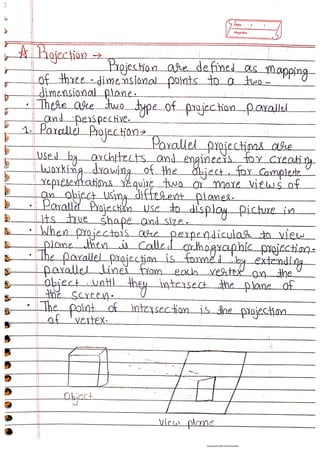 Date / /
Projection →
Projection are defined as mapping
of three-dimensional points to a two-
dimensional plane.
• There are two type of projection parallel
and perspective.
1. Parallel Projection →
Parallel projections are
used by architects and engineers for creating
working drawing of the object, for complete
representations require two or more views of
an object using different planes.
• Parallel Projection use to display picture in
its true shape and size.
• When projectors are perpendicular to view
plane then is called orthographic projection.
• The parallel projection is formed by extending
parallel lines from each vertex on the
object until they intersect the plane of
the screen.
• The point of intersection is the projection
of vertex.
Object
View plane